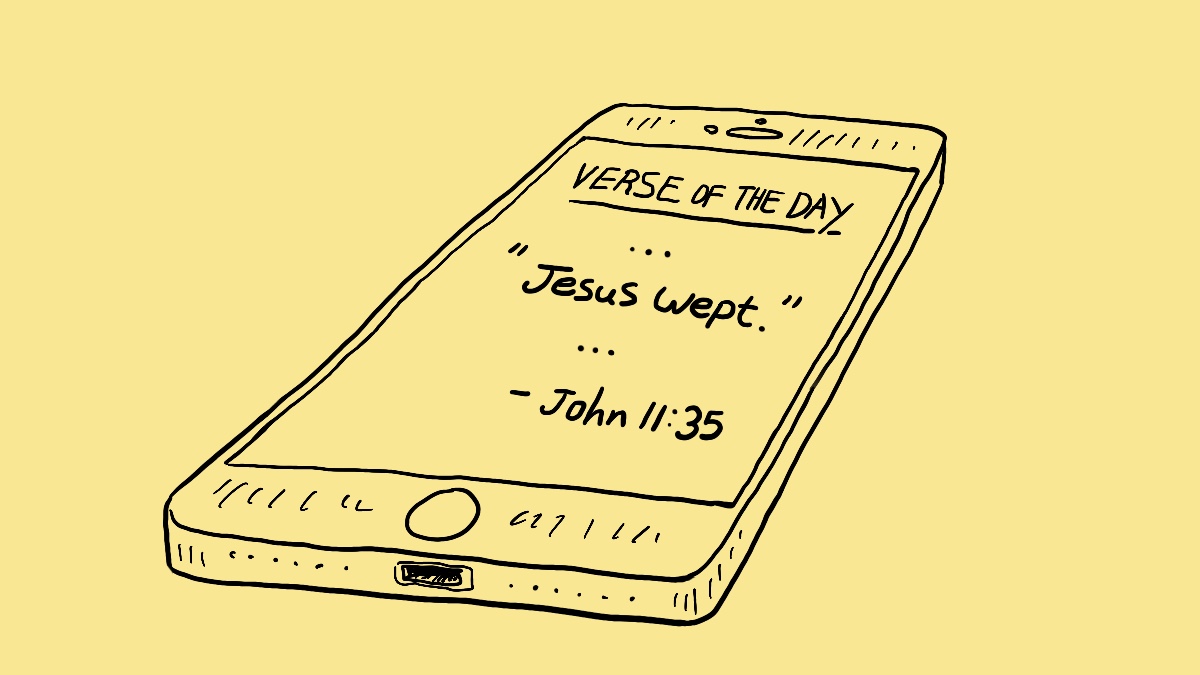 VERSE OF THE DAY
...
"Jesus wept."
...
- John 11:35